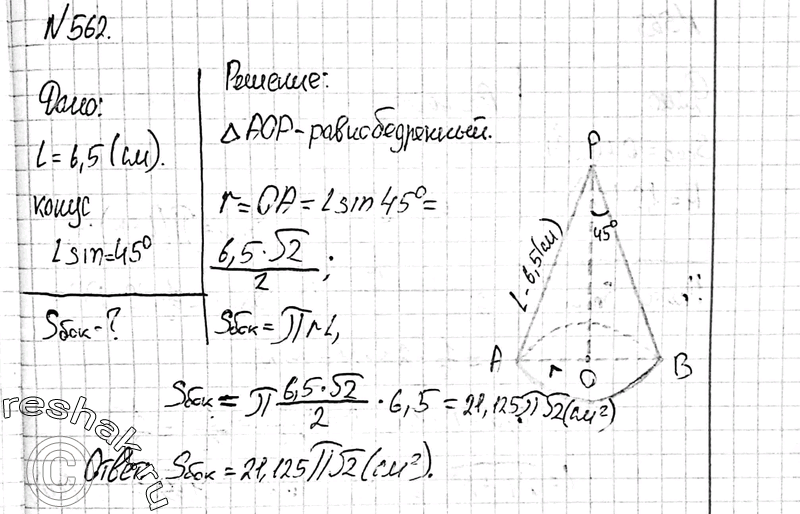 N562.
Дано:
L = 6,5 (см).
конус
L sin=45°
Sбок - ?
Решение:
△ AOP - равнобедренный.
r = OA = L sin 45° =
6,5·√2
2 ;
Sбок = π r L,
Sбок = π 6,5·√2 / 2 · 6,5 = 21,125π√2 (см²)
Ответ: Sбок = 21,125π√2 (см²).
P
45°
L - 6,5 (см)
A
r
O
B
reshak.ru
©